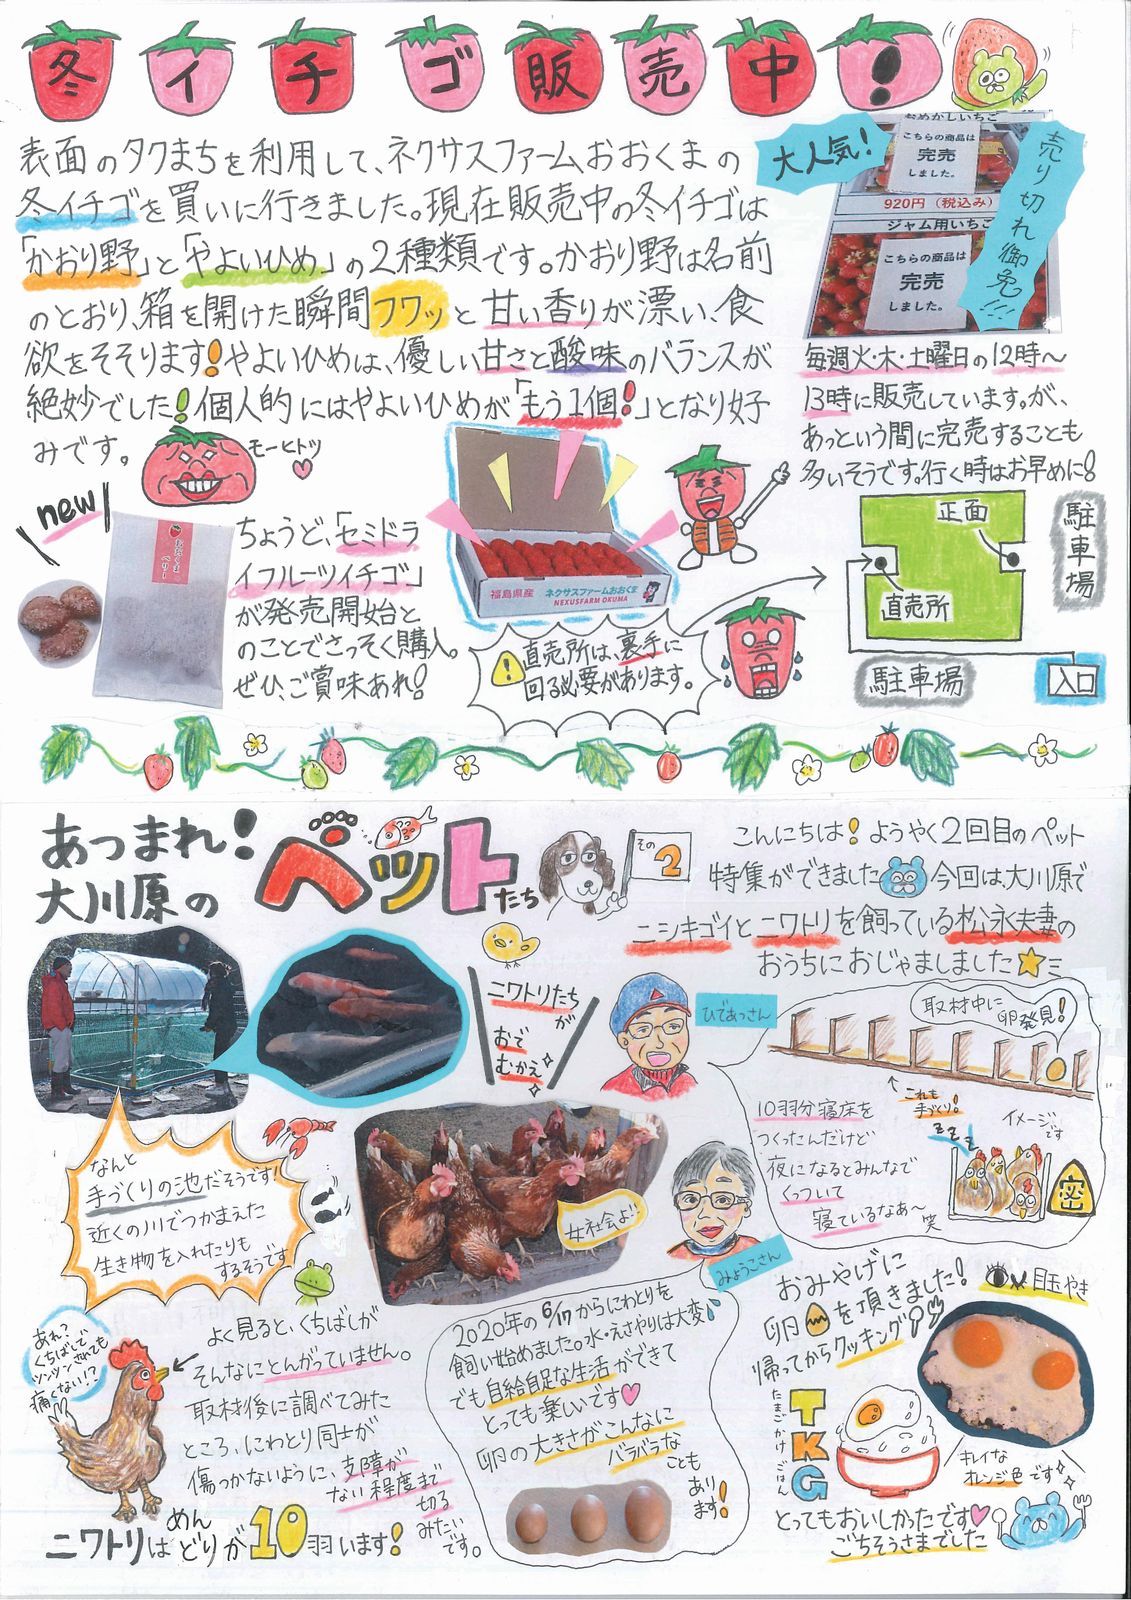 冬イチゴ販売中!
表面のタクまちを利用して、ネクサスファームおおくまの
冬イチゴを買いに行きました。現在販売中の冬イチゴは
「かおり野」と「やよいひめ」の2種類です。かおり野は名前
のとおり、箱を開けた瞬間フワッと甘い香りが漂い、食
欲をそそります!やよいひめは、優しい甘さと酸味のバランスが
絶妙でした!個人的にはやよいひめが「もう1個!」となり好
みです。
モーヒトツ
大人気!
売り切れ御免!!!
おめかしいちご
こちらの商品は
完売
しました。
920円(税込み)
ジャム用いちご
こちらの商品は
完売
しました。
毎週火・木・土曜日の12時〜
13時に販売しています。が、
あっという間に完売することも
多いそうです。行く時はお早めに!
new
おおくまベリー
ちょうど、「セミドラ
イフルーツイチゴ」
が発売開始と
のことでさっそく購入。
ぜひ、ご賞味あれ!
福島県産
ネクサスファームおおくま
NEXUSFARM OKUMA
直売所は、裏手に
回る必要があります。
正面
直売所
駐車場
駐車場
入口
あつまれ!
大川原の
ペットたち
その2
こんにちは!ようやく2回目のペット
特集ができました今回は、大川原で
ニシキゴイとニワトリを飼っている松永夫妻の
おうちにおじゃましました
ニワトリたちが
おでむかえ
ひであっさん
取材中に卵発見!
これも手づくり!
10羽分寝床を
つくったんだけど
夜になるとみんなで
くっついて
寝ているなあ〜
笑
イメージです
zzz
密
なんと
手づくりの池だそうです!
近くの川でつかまえた
生き物を入れたりも
するそうです
女社会よ!
みょうこさん
あれ?
くちばしで
ツンツンされても
痛くない!?
よく見ると、くちばしが
そんなにとんがっていません。
取材後に調べてみた
ところ、にわとり同士が
傷つかないように、支障が
ない程度まで
切る
みたいです。
ニワトリはめんどりが10羽います!
2020年の6/17からにわとりを
飼い始めました。水・えさやりは大変
でも自給自足な生活ができて
とっても楽しいです
卵の大きさがこんなに
バラバラな
ことも
あります!
おみやげに
卵を頂きました!
帰ってからクッキング
目玉やき
TKG
たまごかけごはん
キレイな
オレンジ色です
とってもおいしかったです
ごちそうさまでした